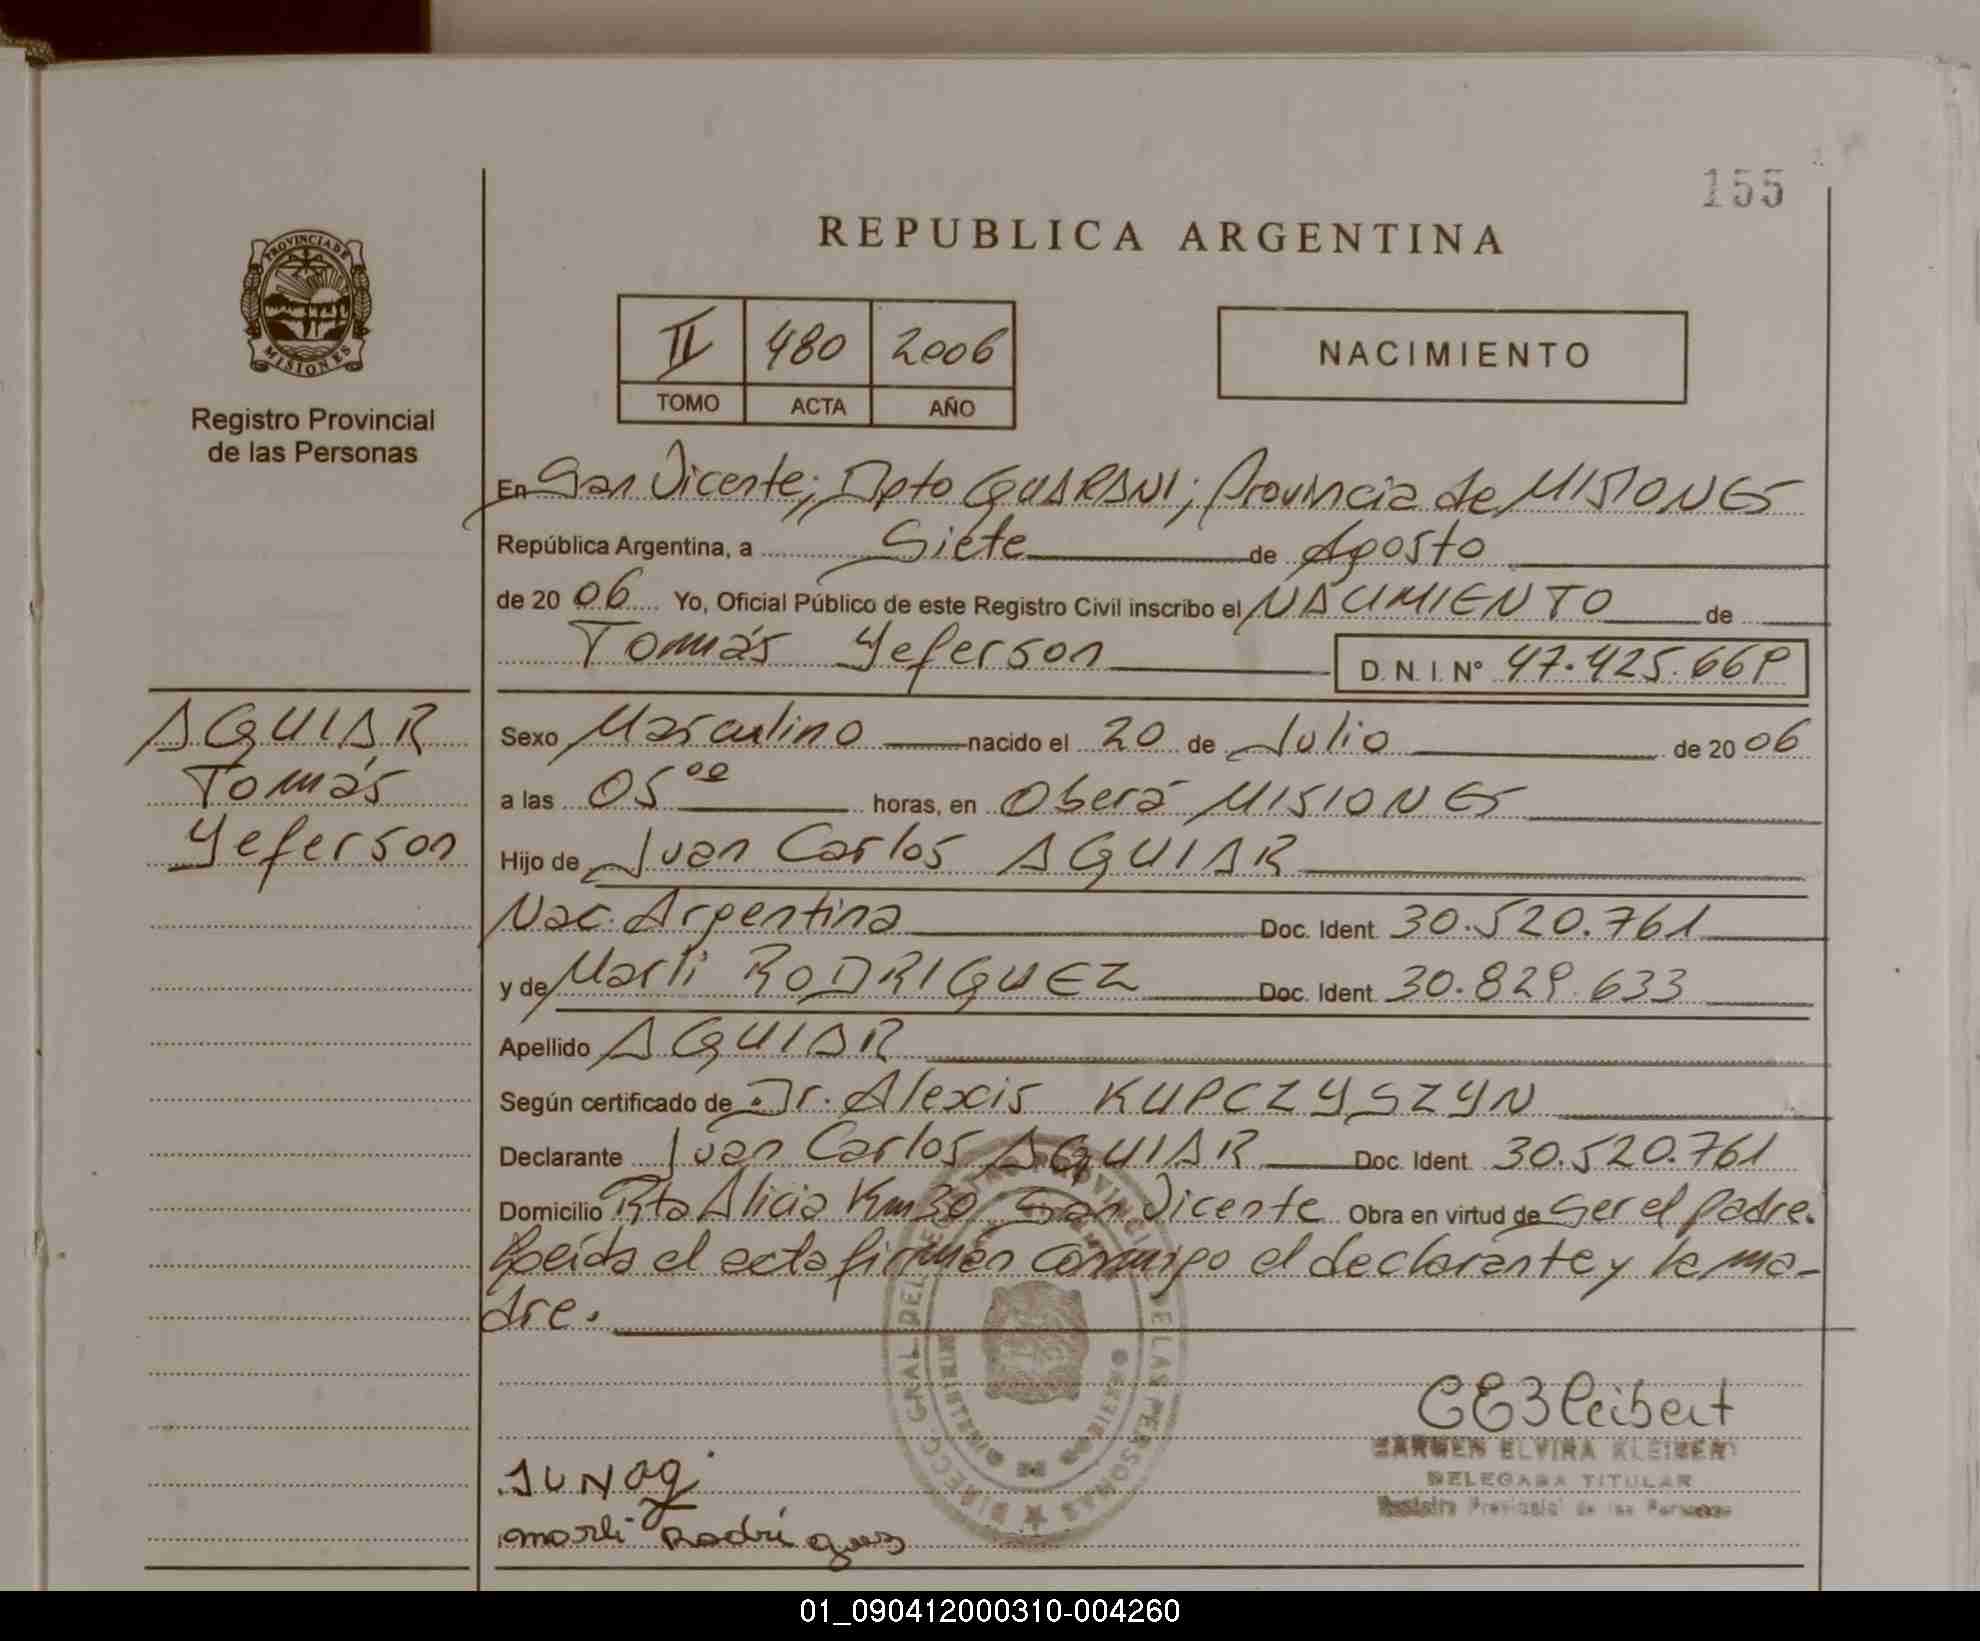 155
REPUBLICA ARGENTINA
PROVINCIA DE MISIONES
Registro Provincial
de las Personas
II 480 2006
TOMO ACTA AÑO
NACIMIENTO
En San Vicente; Dpto GUARANI; Provincia de MISIONES
República Argentina, a Siete de Agosto
de 2006 Yo, Oficial Público de este Registro Civil inscribo el NACIMIENTO de
Tomás Yeferson D.N.I. Nº 47.425.669
AGUIAR
Tomás
Yeferson
Sexo Masculino nacido el 20 de Julio de 2006
a las 05 00 horas, en Oberá MISIONES
Hijo de Juan Carlos AGUIAR
Nac. Argentina Doc. Ident. 30.520.761
y de Marli RODRIGUEZ Doc. Ident. 30.829.633
Apellido AGUIAR
Según certificado de Dr. Alexis KUPCZYSZYN
Declarante Juan Carlos AGUIAR Doc. Ident. 30.520.761
Domicilio Rta Alicia Km 30 San Vicente Obra en virtud de Ser el padre.
Leída el acta firman conmigo el declarante y la ma-
dre.
DIRECC. GRAL. DEL REGISTRO PROVINCIAL DE LAS PERSONAS
MINISTERIO DE GOBIERNO
CARMEN ELVIRA KLEIBERT
DELEGADA TITULAR
Registro Provincial de las Personas
marli Rodriguez
01_090412000310-004260